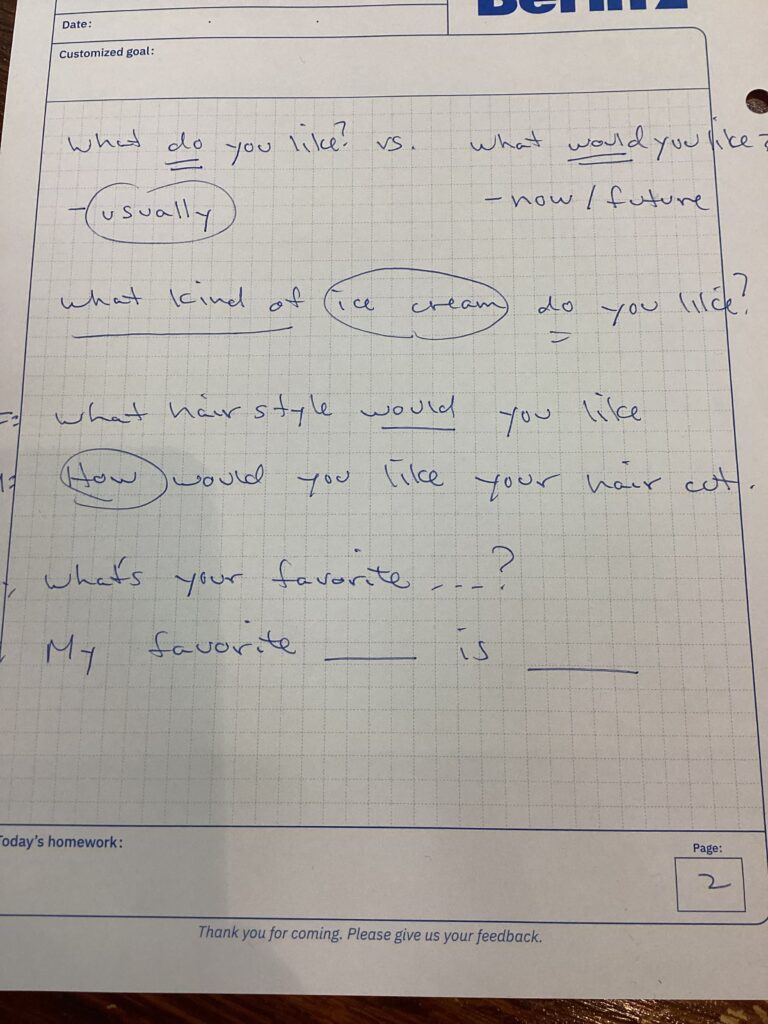 Berlitz
Date:
Customized goal:
What do you like? vs. What would you like?
- usually - now / future
what kind of ice cream do you like?
what hair style would you like
How would you like your hair cut.
what's your favorite ---?
My favorite ____ is ____
Today's homework:
Page:
2
Thank you for coming. Please give us your feedback.